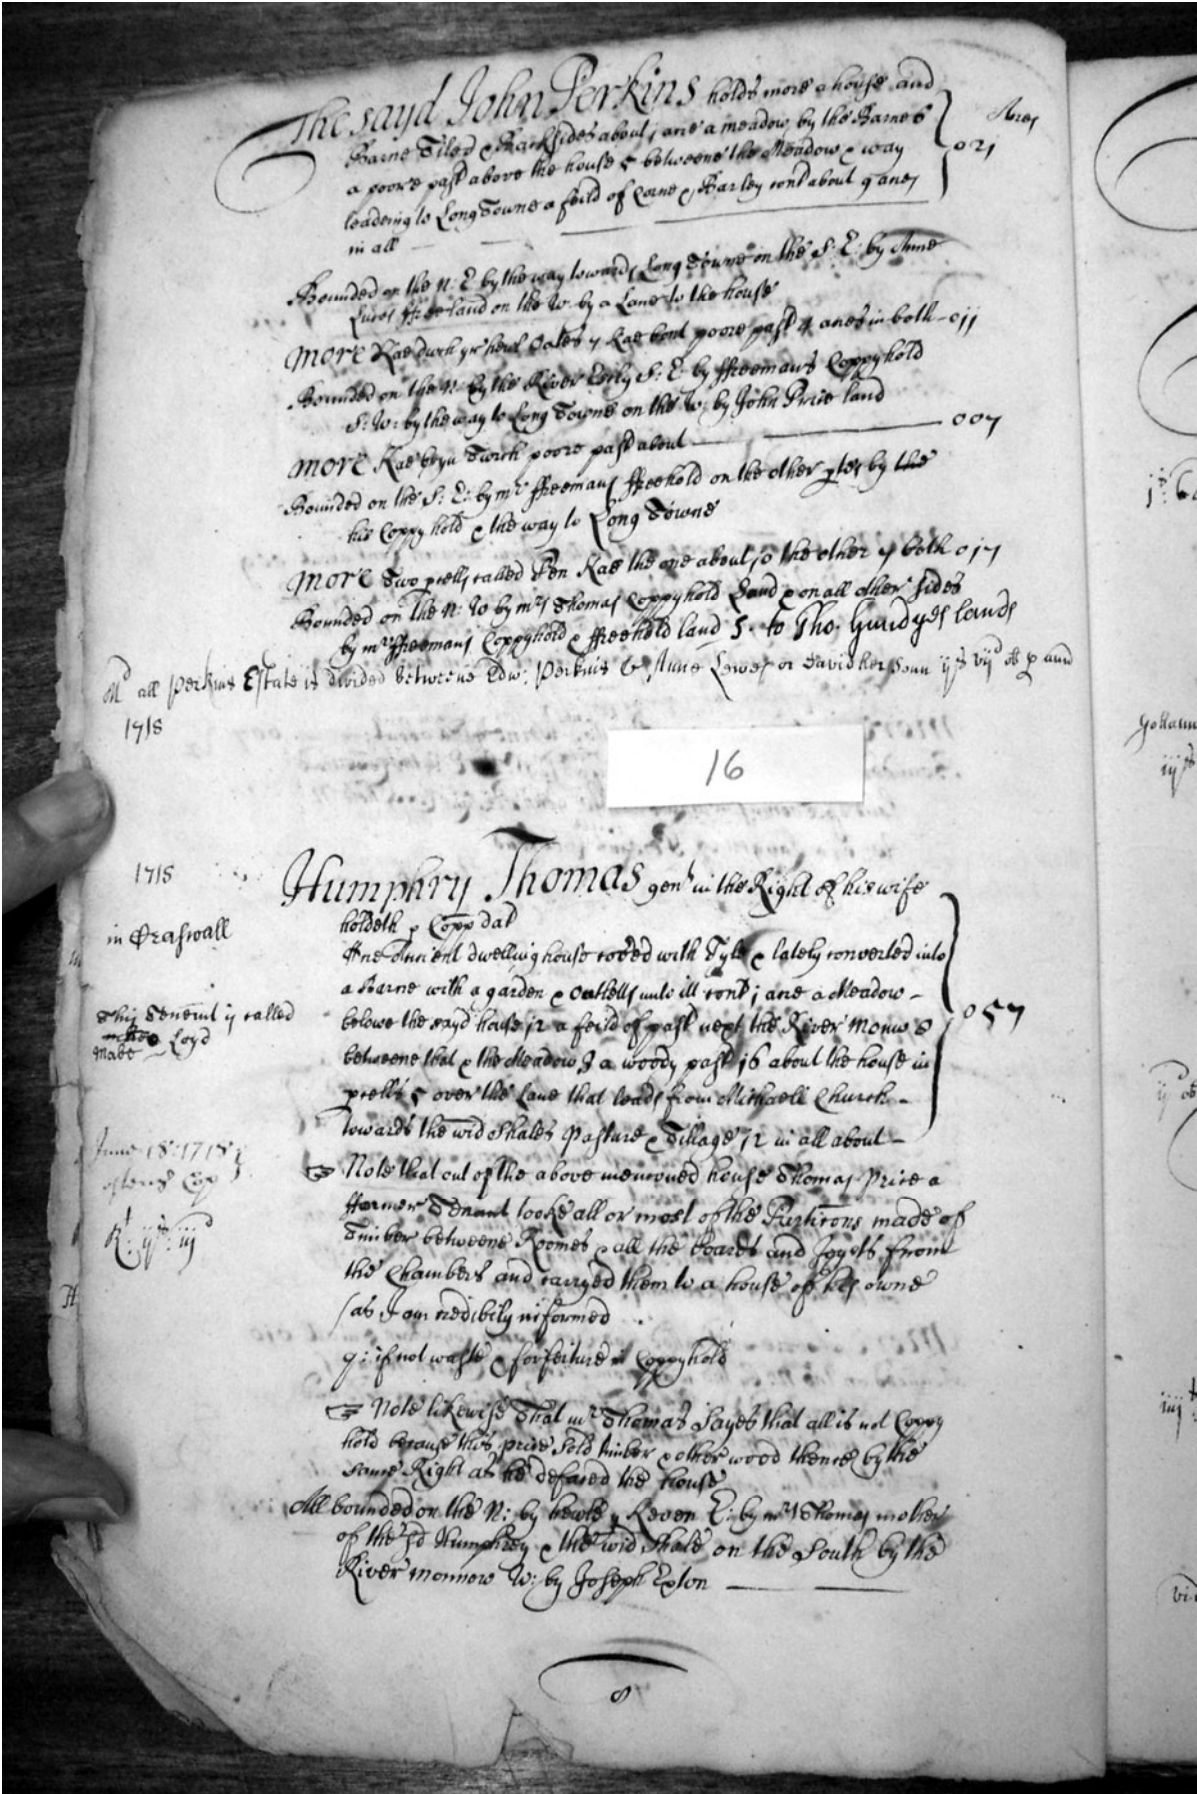 The sayd John Perkins holds more a house and
Barne Tiled & Backsides about j acre a meadow by the Barne 6
a poore past above the house 5 betweene the Meadow & way
leadeing to Long Towne a feild of Corne & Barley cont about 9 acres
in all
Acres
021
Bounded on the N: E by the way towards Long Towne on the S: E: by Anne
Lewes ffreeland on the W. by a Lane to the house
more Kae oates & Kae poore past 4 acres in both - 011
Bounded on the N: by the River S: E: by ffreemans Coppyhold
S: W: by the way to Long Towne on the W: by John Price land
more Kae poore past about 007
Bounded on the S: E: by mr ffreemans ffreehold on the other ptes by the
his Coppyhold & the way to Long Towne
more Two pcells called Pen Kae the one about 10 the other 7 both 017
Bounded on the N: W by mrs Thomas Coppyhold Land & on all other sides
by mr ffreemans Coppyhold & ffreehold land S. to Tho: lands
Md all Perkins Estate is divided betweene Edw: Perkins & Anne Lewes or David her Sonn
1718
16
1718
Humphry Thomas gent in the Right of his wife
holdeth p Copp dat
in Craswall
Ane Antient dwelling house coved with Tyle & lately converted into
a Barne with a garden & Outletts unto itt cont j acre a Meadow -
This Tenemt is called
Mabe Loyd
belowe the sayd house 12 a feild of past next the River Monnow 8
betweene that & the Meadow 3 a woody past 16 about the house in
pcells 5 over the Lane that leads from Michaell Church -
towards the wid Shales Pasture & Tillage 12 in all about -
057
June 18: 1718
Cop
Rt: ijs: iijd
Note that out of the above mencioned house Thomas Price a
former Tenant tooke all or most of the Partitions made of
Timber betweene Roomes & all the boards and Joysts from
the Chambers and carryed them to a house of his owne
(as I am credibily informed
q: if not waste & forfeiture Coppyhold
Note likewise That mr Thomas Sayes that all is not Coppy
hold because this price Sold timber & other wood thence by the
same Right as he defaced the house
All bounded on the N: by E: by mrs Thomas mother
of the sd Humphrey & the wid Shale on the South by the
River monnow W: by Joseph Exton
8